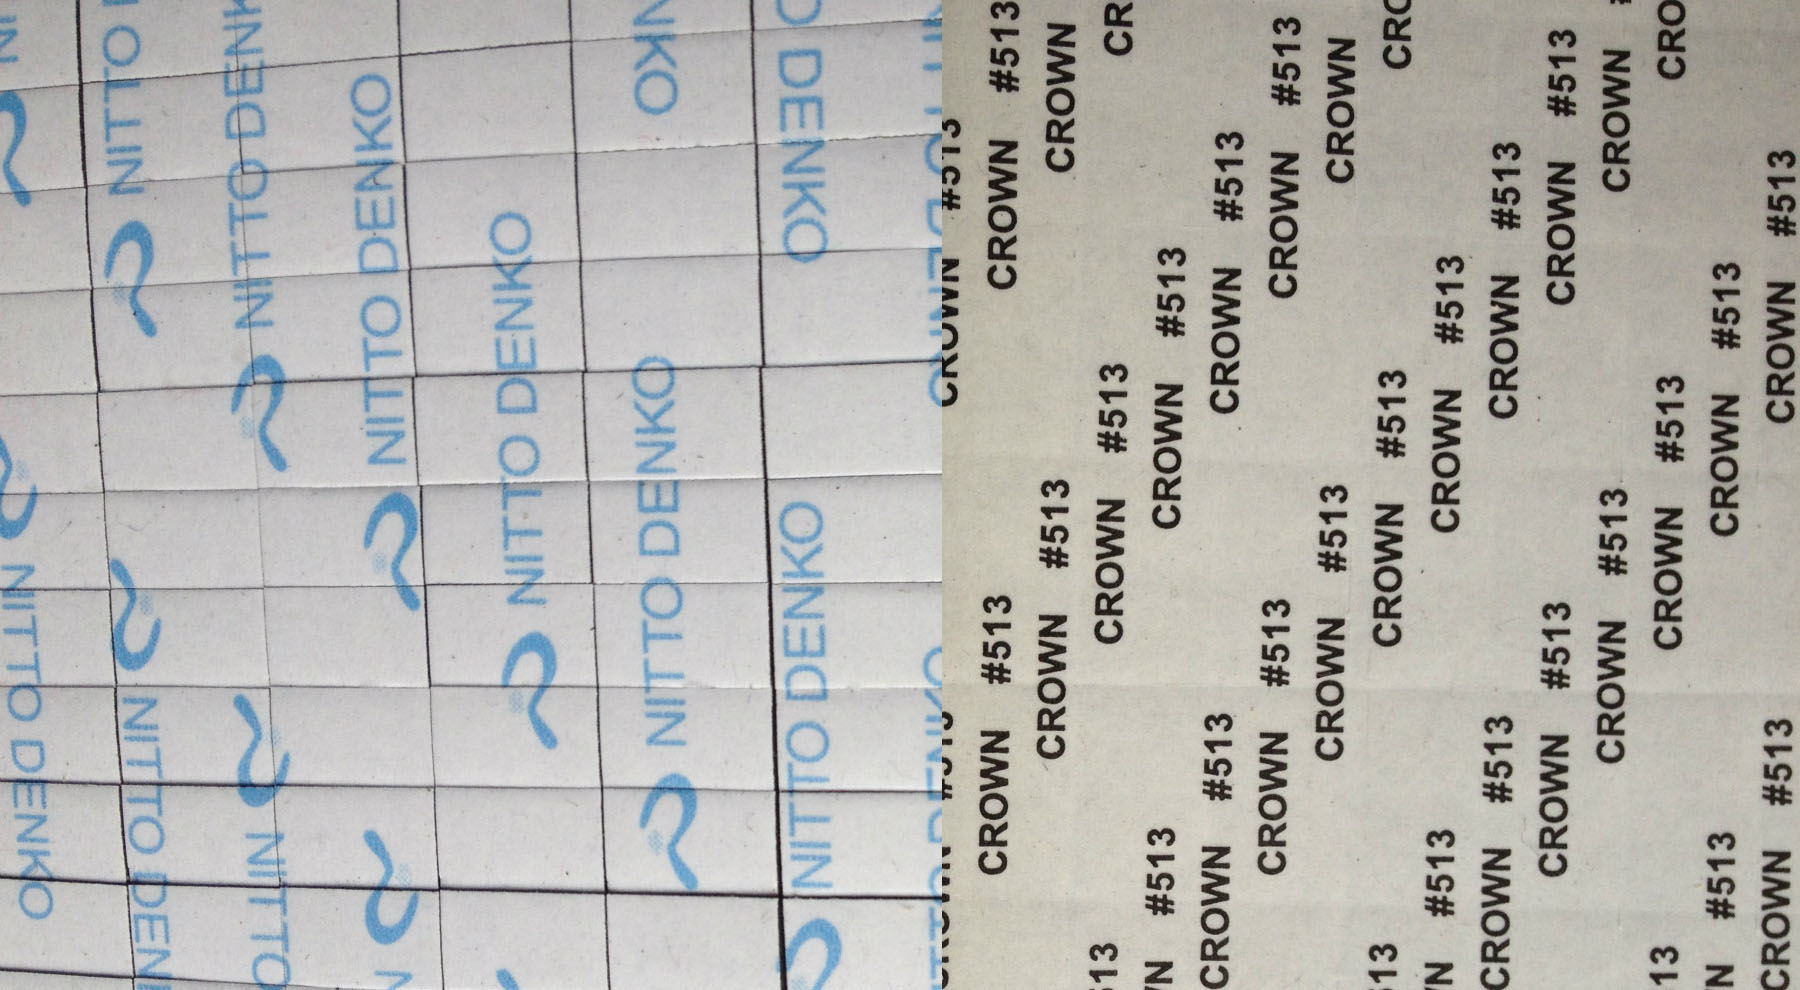 NITTO
NITTO DENK
NITTO DENKO
NITTO DENKO
NITTO DENKO
NITTO DENKO
NKO
O DENKO
NITTO DENKO
NITTO DEN
NITTO
CROWN #513
CROWN #513
CROWN
CROWN #513
CROWN #513
CROWN #513
CROWN #513
CROWN #513
CROWN #513
CROWN
CROWN #513
CROWN #513
CROWN #513
CROWN #513
CROWN #513
CROWN #513
CROWN
CROWN #513
CROWN #513
CROWN #513
CROWN #513
CROWN #513
CROWN #513
CROWN #513
#513
#513
#513